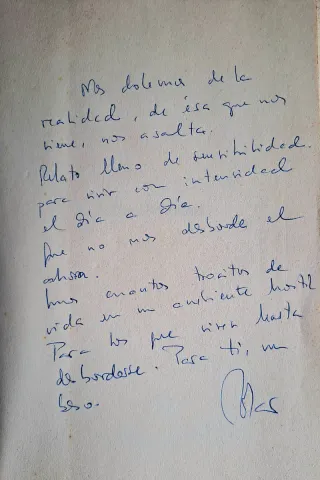 Nos dolemos de la
realidad, de ésa que nos
viene, nos asalta.
Relato lleno de sensibilidad.
para vivir con intensidad
el día a día.
Que no nos desborde el
ahora.
Unos cuantos trocitos de
vida en un ambiente hostil
Para los que viven hasta
desbordarse. Para ti, un
beso.